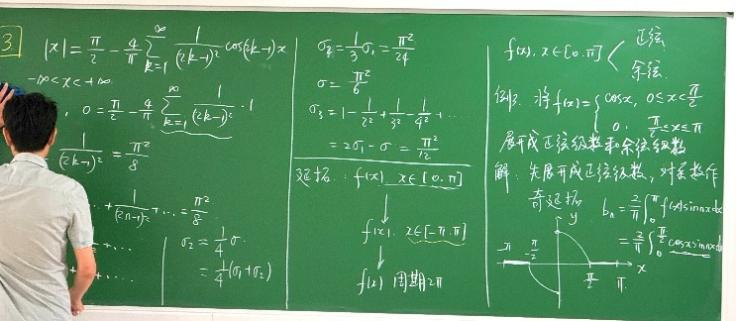 3
|x| = π/2 - 4/π ∑_{k=1}^{∞} 1/(2k-1)² cos(2k-1)x
-∞<x<+∞
0 = π/2 - 4/π ∑_{k=1}^{∞} 1/(2k-1)² · 1
1/(2k-1)² = π²/8
...+ 1/(2n-1)² + ... = π²/8
+ ...
+ ...
σ₂ = 1/4 σ
= 1/4(σ₁+σ₂)
σ₂ = 1/3 σ₁ = π²/24
σ = π²/6
σ₃ = 1 - 1/2² + 1/3² - 1/4² + ...
= 2σ₁ - σ = π²/12
延拓: f(x) x∈[0.π]
↓
f(x). x∈[-π.π]
↓
f(x) 周期2π
f(x), x∈[0.π] < 正弦
余弦
例3. 将f(x)={cosx, 0≤x<π/2
0, π/2≤x≤π
展开成正弦级数和余弦级数
解: 先展开成正弦级数, 对函数作
奇延拓 b_n = 2/π ∫_0^π f(x)sinnxdx
= 2/π ∫_0^{π/2} cosxsinnxd
y
-π -π/2 π/2 π x